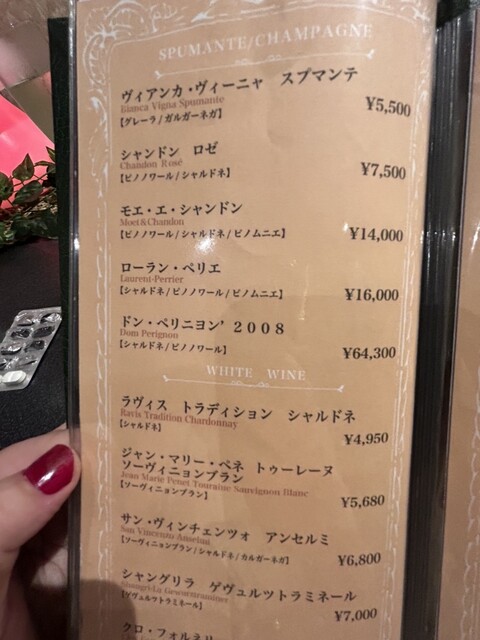 SPUMANTE/CHAMPAGNE
ヴィアンカ・ヴィーニャ スプマンテ
Bianca Vigna Spumante
【グレーラ/ガルガーネガ】
¥5,500
シャンドン ロゼ
Chandon Rosé
【ピノノワール/シャルドネ】
¥7,500
モエ・エ・シャンドン
Moet&Chandon
【ピノノワール/シャルドネ/ピノムニエ】
¥14,000
ローラン・ペリエ
Laurent-Perrier
【シャルドネ/ピノノワール/ピノムニエ】
¥16,000
ドン・ペリニヨン’ 2008
Dom Perignon
【シャルドネ/ピノノワール】
¥64,300
WHITE WINE
ラヴィス トラディション シャルドネ
Ravis Tradition Chardonnay
【シャルドネ】
¥4,950
ジャン・マリー・ペネ トゥーレーヌ
ソーヴィニョンブラン
Jean Marie Penet Touraine Sauvignon Blanc
【ソーヴィニョンブラン】
¥5,680
サン・ヴィンチェンツォ アンセルミ
San Vincenzo Anselmi
【ソーヴィニョンブラン/シャルドネ/カルガーネガ】
¥6,800
シャングリラ ゲヴュルツトラミネール
Shangri-La Gewurztraminer
【ゲヴュルツトラミネール】
¥7,000
クロ・フォルネリ